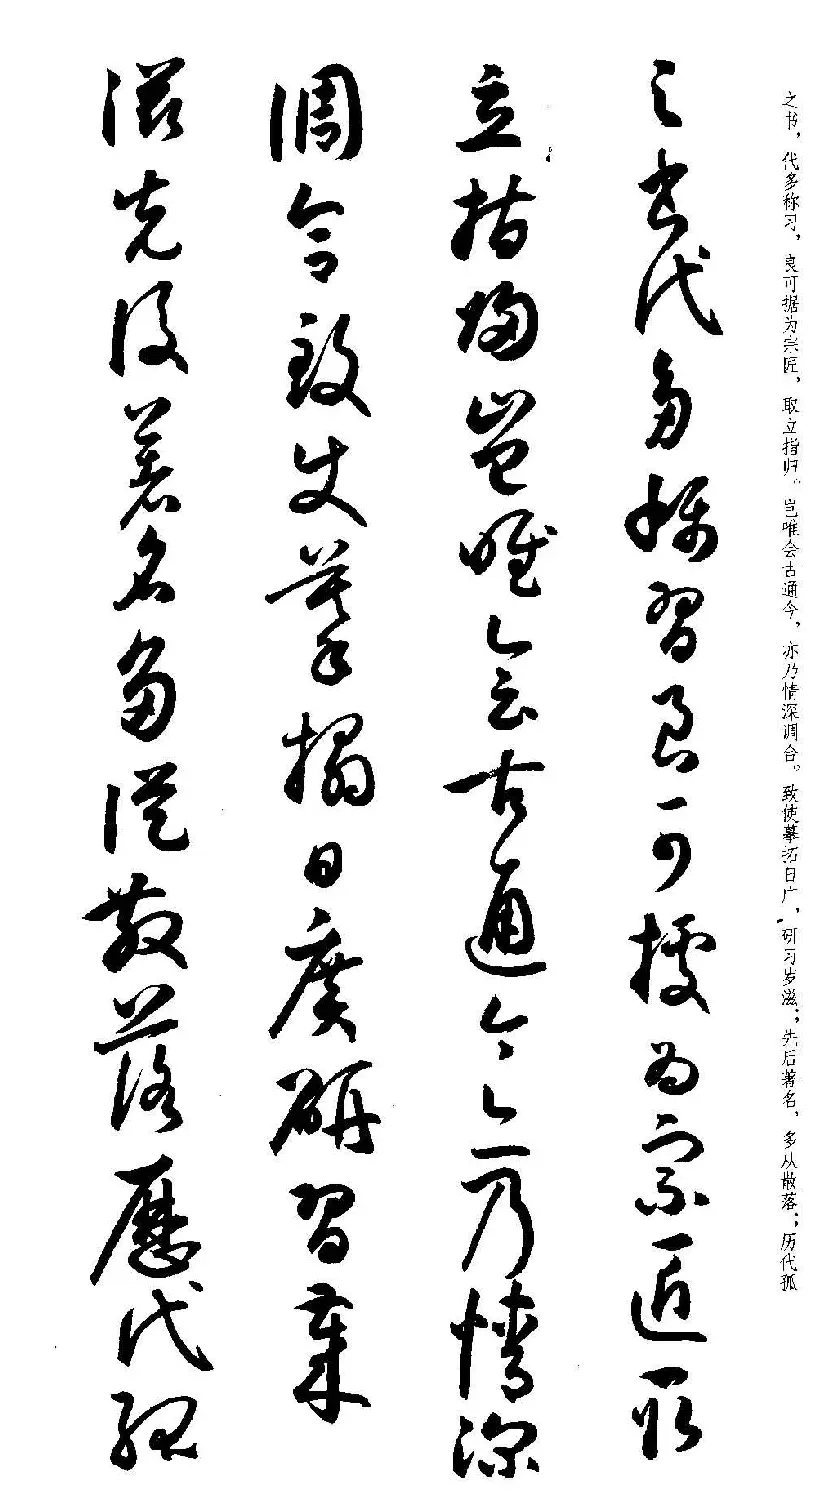 之书，代多称习，良可据为宗匠，取立指归。岂唯会古通今，亦乃情深调合。致使摹拓日广，研习岁滋；先后著名，多从散落；历代孤
之书代多称習良可據为宗匠取
立指歸豈唯会古通今亦乃情深
調合致使摹搨日廣研習歲
滋先後著名多從散落歷代孤